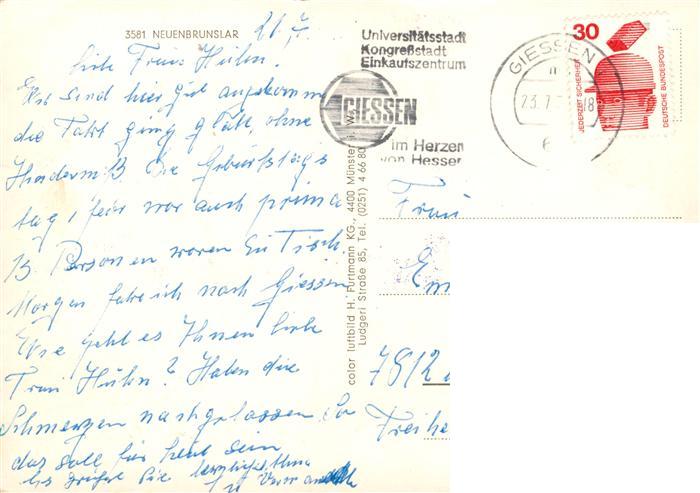 3581 NEUENBRUNSLAR
21.7.
Liebe Frau Hühn.
sind hier gut angekommen
die Fahrt ging glatt ohne
Hindernis Die Geburtstags
tag, feier war auch prima
13 Personen waren zu Tisch,
Morgen fahre ich nach Giessen
Wie geht es Ihnen liebe
Frau Hühn? Haben die
Schmerzen nachgelassen So
das soll für heut sein
Es grüßt Sie herzlichst Ihre
color luftbild H. Furtmann KG., 4400 Münster i. W.
Ludgeri Straße 85, Tel. (0251) 4 66 80
Universitätsstadt
Kongreßstadt
Einkaufszentrum
GIESSEN
im Herzen
von Hessen
GIESSEN
23.7.
18
6
30
JEDERZEIT SICHERHEIT
DEUTSCHE BUNDESPOST
Frau
Em
7812
Freibu